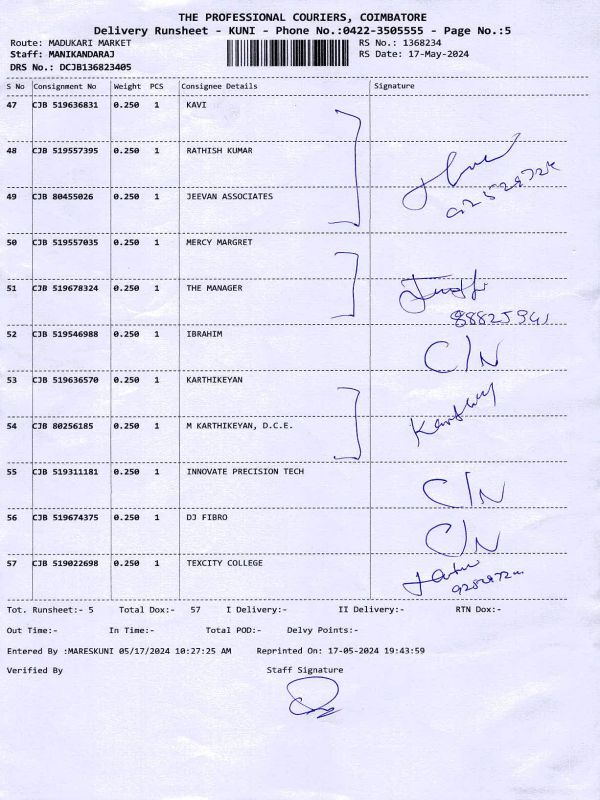 THE PROFESSIONAL COURIERS, COIMBATORE
Delivery Runsheet - KUNI - Phone No.:0422-3505555 - Page No.:5
Route: MADUKARI MARKET RS No.: 1368234
Staff: MANIKANDARAJ RS Date: 17-May-2024
DRS No.: DCJB136823405
S No Consignment No Weight PCS Consignee Details Signature
47 CJB 519636831 0.250 1 KAVI
48 CJB 519557395 0.250 1 RATHISH KUMAR
49 CJB 80455026 0.250 1 JEEVAN ASSOCIATES
50 CJB 519557035 0.250 1 MERCY MARGRET
51 CJB 519678324 0.250 1 THE MANAGER
52 CJB 519546988 0.250 1 IBRAHIM C/N
53 CJB 519636570 0.250 1 KARTHIKEYAN
54 CJB 80256185 0.250 1 M KARTHIKEYAN, D.C.E.
55 CJB 519311181 0.250 1 INNOVATE PRECISION TECH C/N
56 CJB 519674375 0.250 1 DJ FIBRO C/N
57 CJB 519022698 0.250 1 TEXCITY COLLEGE
Tot. Runsheet:- 5 Total Dox:- 57 I Delivery:- II Delivery:- RTN Dox:-
Out Time:- In Time:- Total POD:- Delvy Points:-
Entered By :MARESKUNI 05/17/2024 10:27:25 AM Reprinted On: 17-05-2024 19:43:59
Verified By Staff Signature